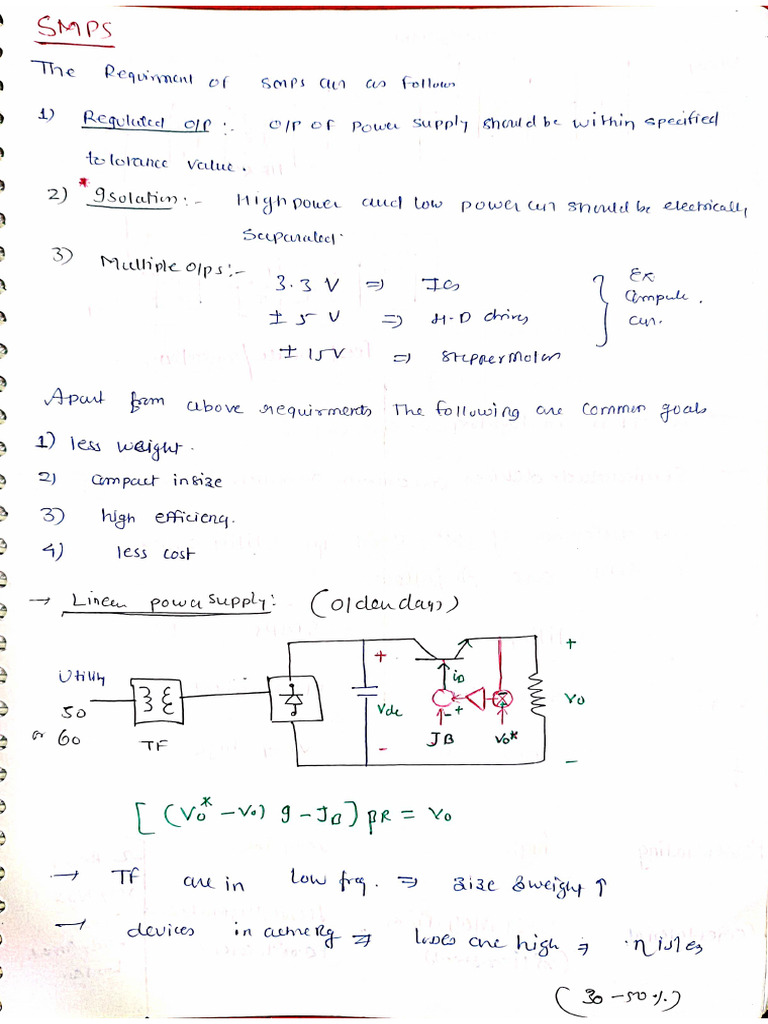 SMPS
The Requirment of SMPS are as follows
1) Regulated o/p :- O/P OF Power supply should be within specified
tolorance value.
2) *Isolation :- High power and low power cir should be electrically
Seperated.
3) Multiple o/ps :-
3.3 V ⇒ ICs
± 5 V ⇒ H.D drives
± 15V ⇒ Stepper Motor
Ex
Compute
cir.
Apart from above requirments The following are common goals
1) less weight.
2) compact in size
3) high efficiency.
4) less cost
→ Linear power supply: (Olden days)
Utility
50
or 60
TF
+
Vdc
-
iB
- +
IB
Vo*
+
Vo
-
[(Vo* - Vo) g - IB] βR = Vo
→ TF are in low freq. ⇒ size & weight ↑
→ devices in active Rg ⇒ losses are high ⇒ η is less
(30 - 50 %)